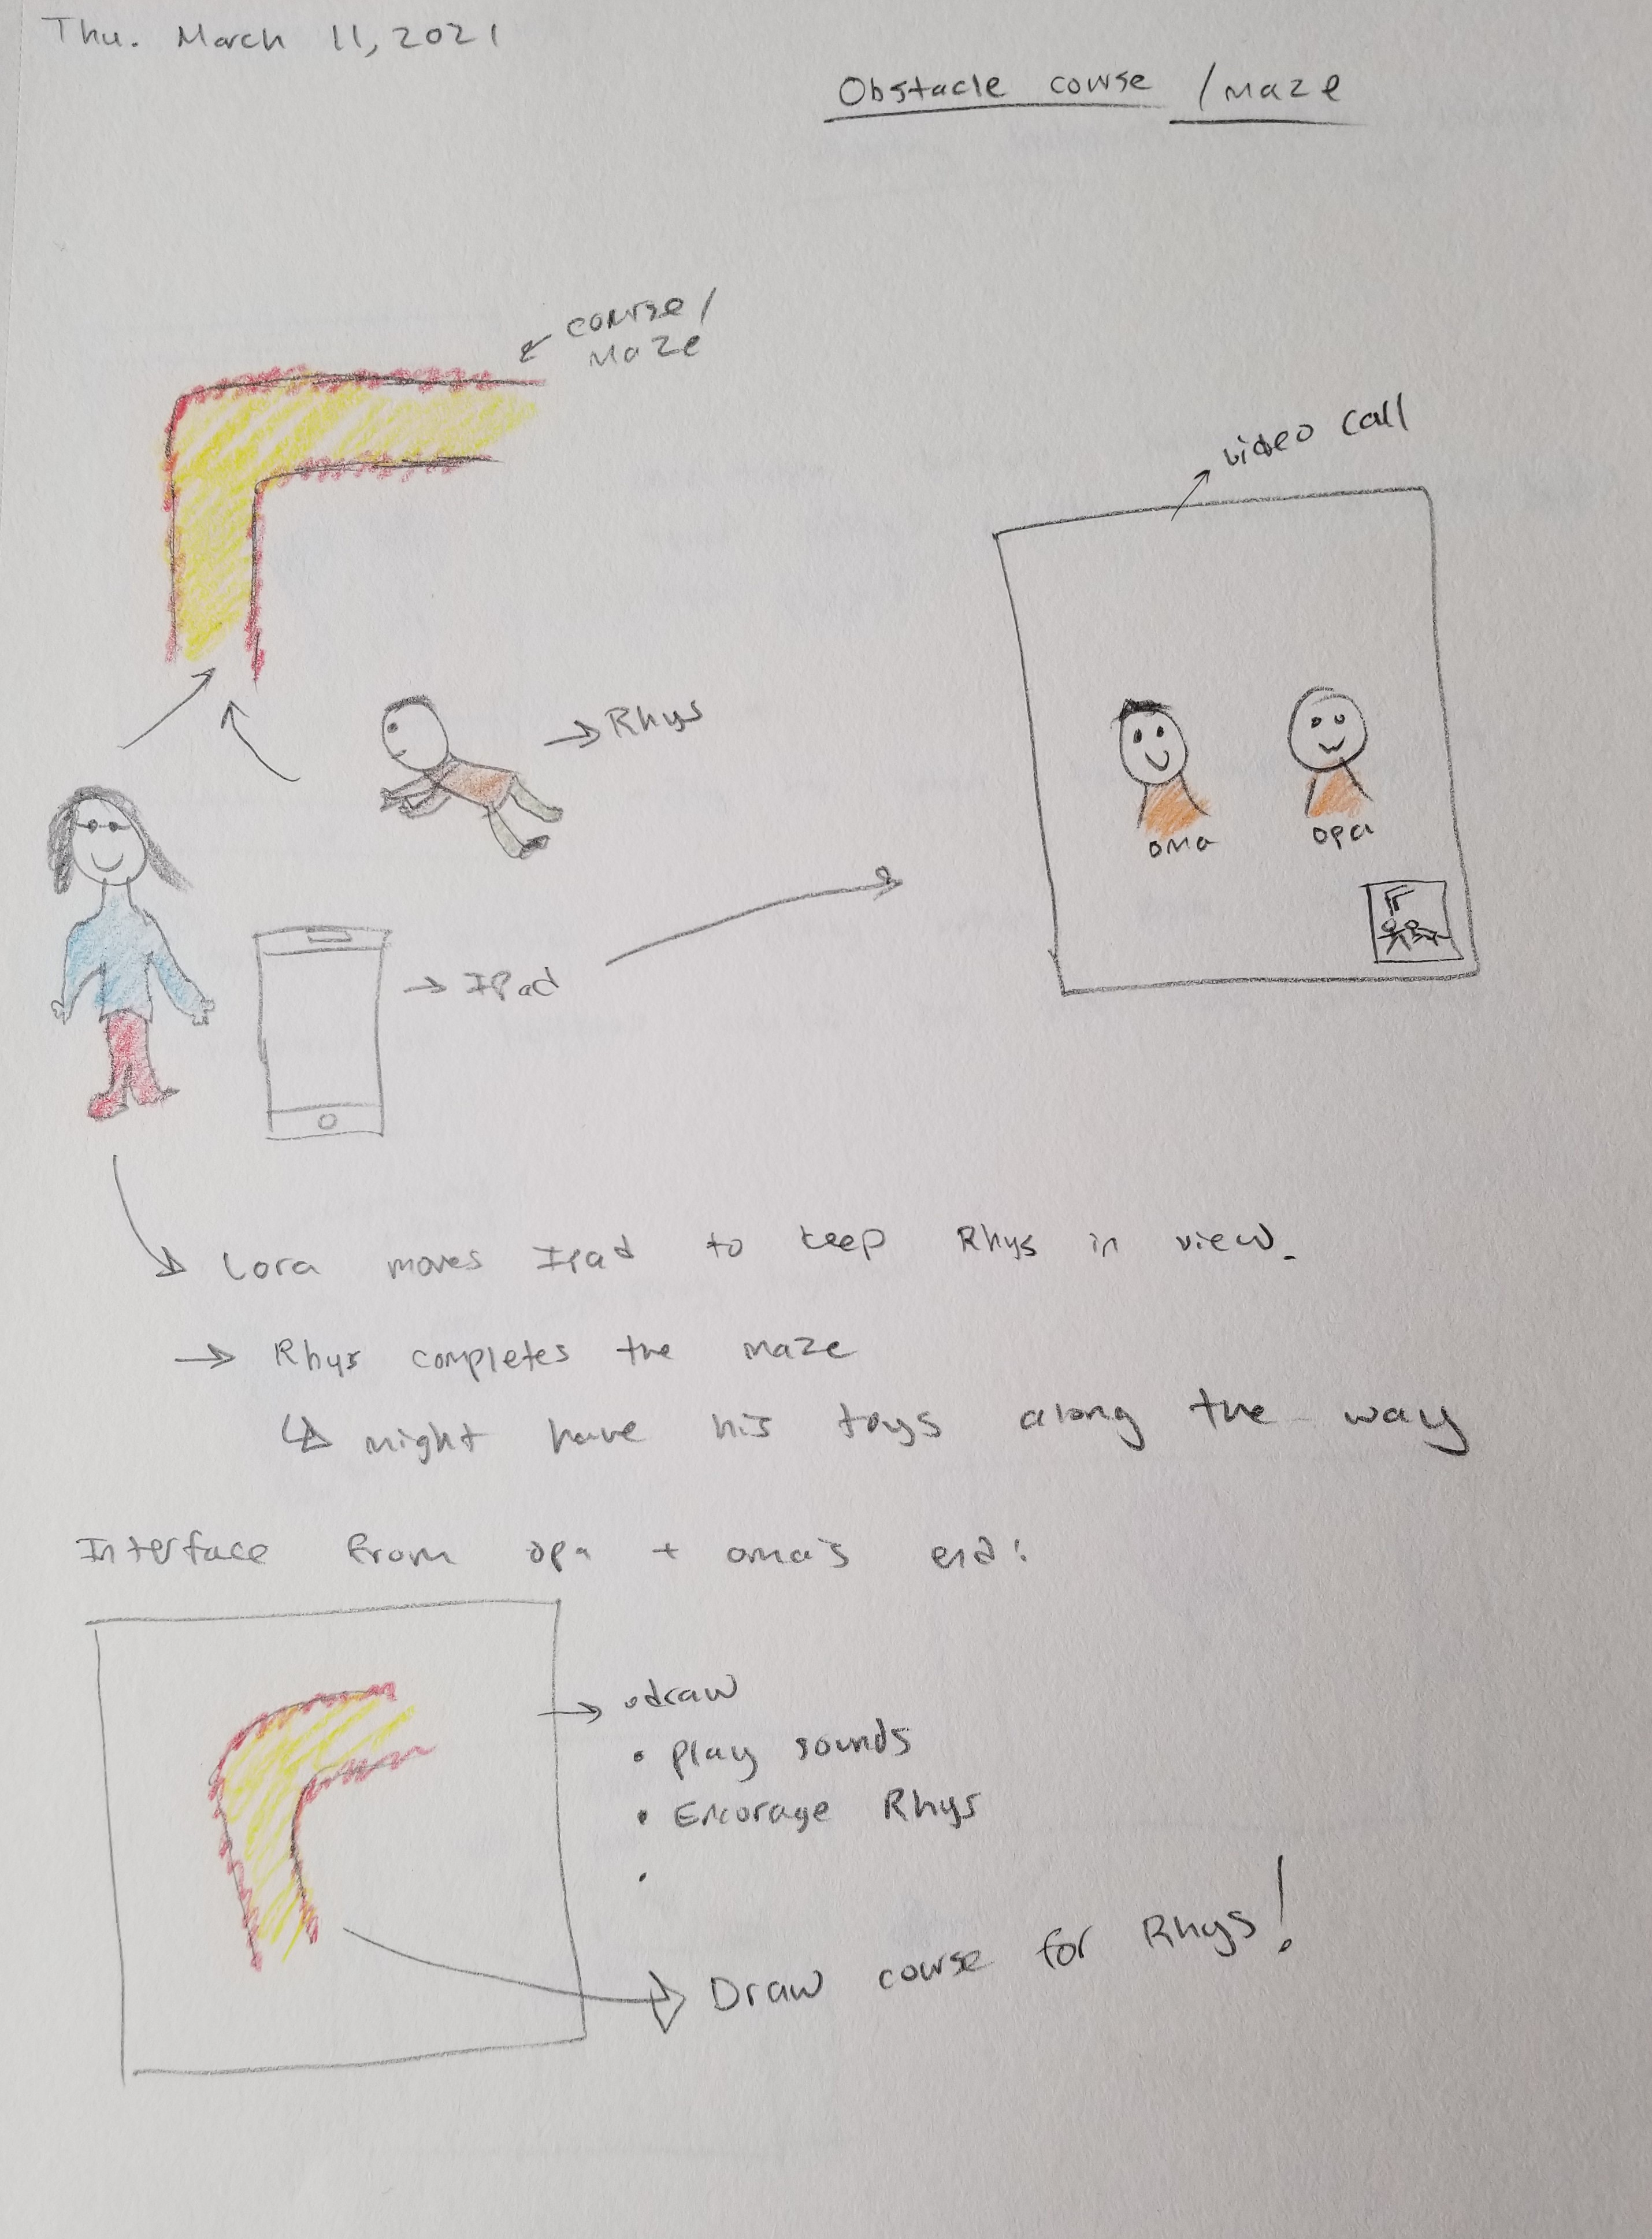 Thu. March 11, 2021
Obstacle course / maze
course /
maze
video call
→ Rhys
oma
opa
→ IPad
Lora moves IPad to keep Rhys in view.
→ Rhys completes the maze
↳ might have his toys along the way
Interface from opa + oma's end:
→ • draw
• play sounds
• Encorage Rhys
•
Draw course for Rhys!